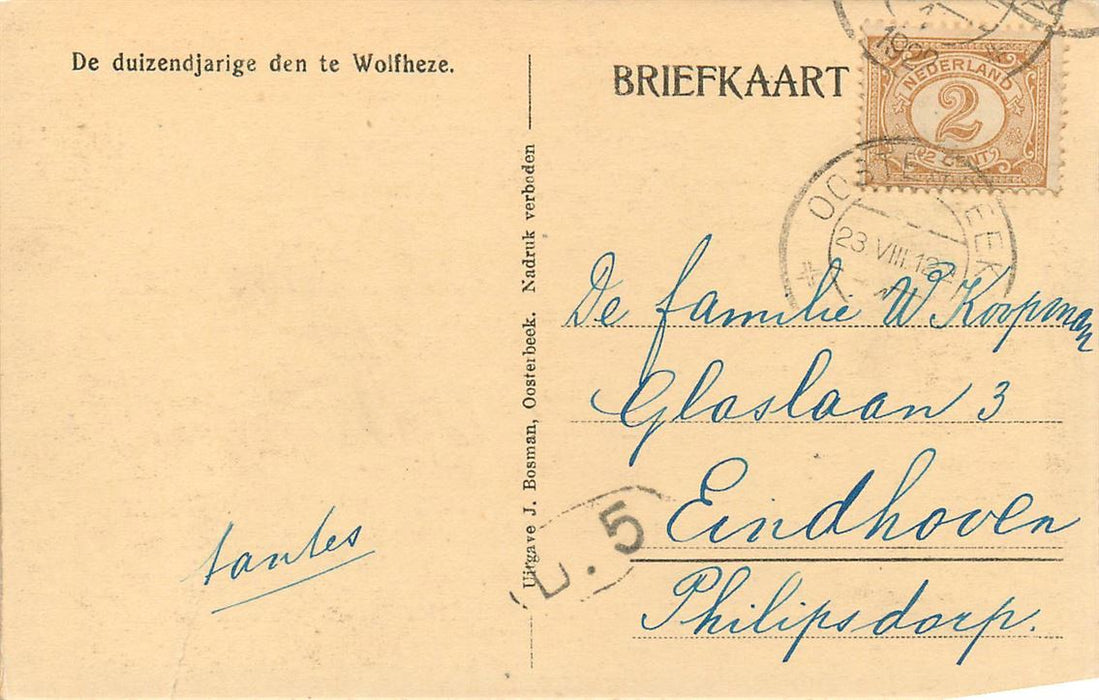 De duizendjarige den te Wolfheze.
BRIEFKAART
NEDERLAND
2
2 CENT
OOSTERBEEK
23 VIII.12
De familie W Koopman
Glaslaan 3
Eindhoven
Philipsdorp.
tantes
Uitgave J. Bosman, Oosterbeek. Nadruk verboden
5